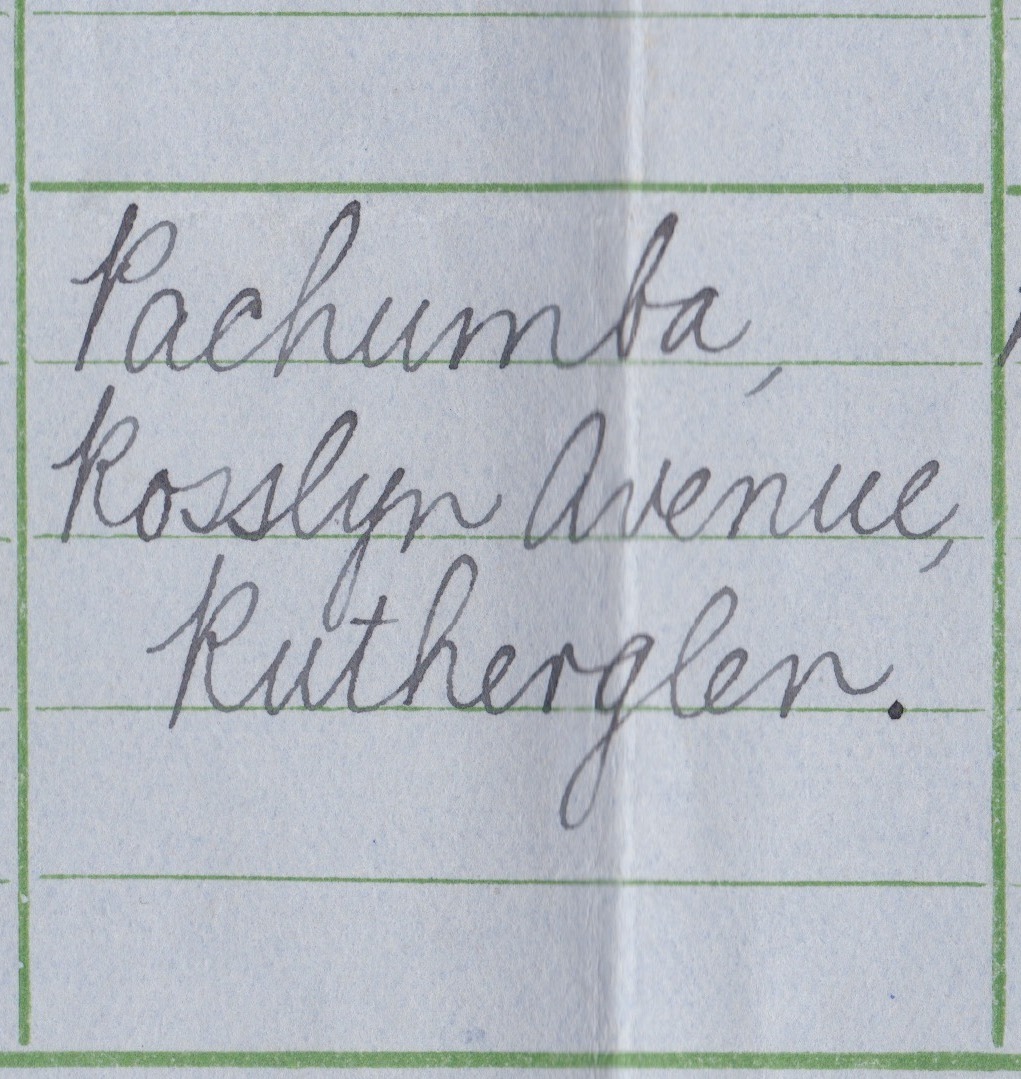 Pachumba,
Rosslyn Avenue,
Rutherglen.